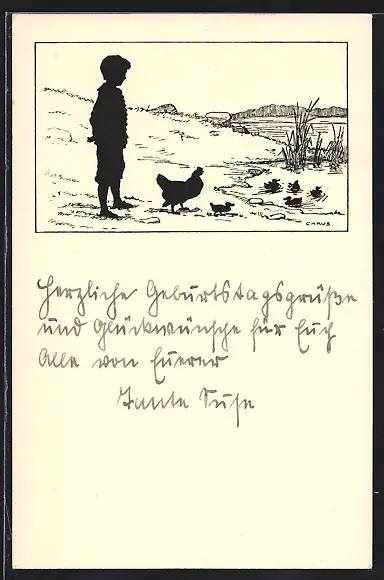 CARUS.
Herzliche Geburtstagsgrüße
und Glückwünsche für Euch
Alle von Euerer
Tante Suse